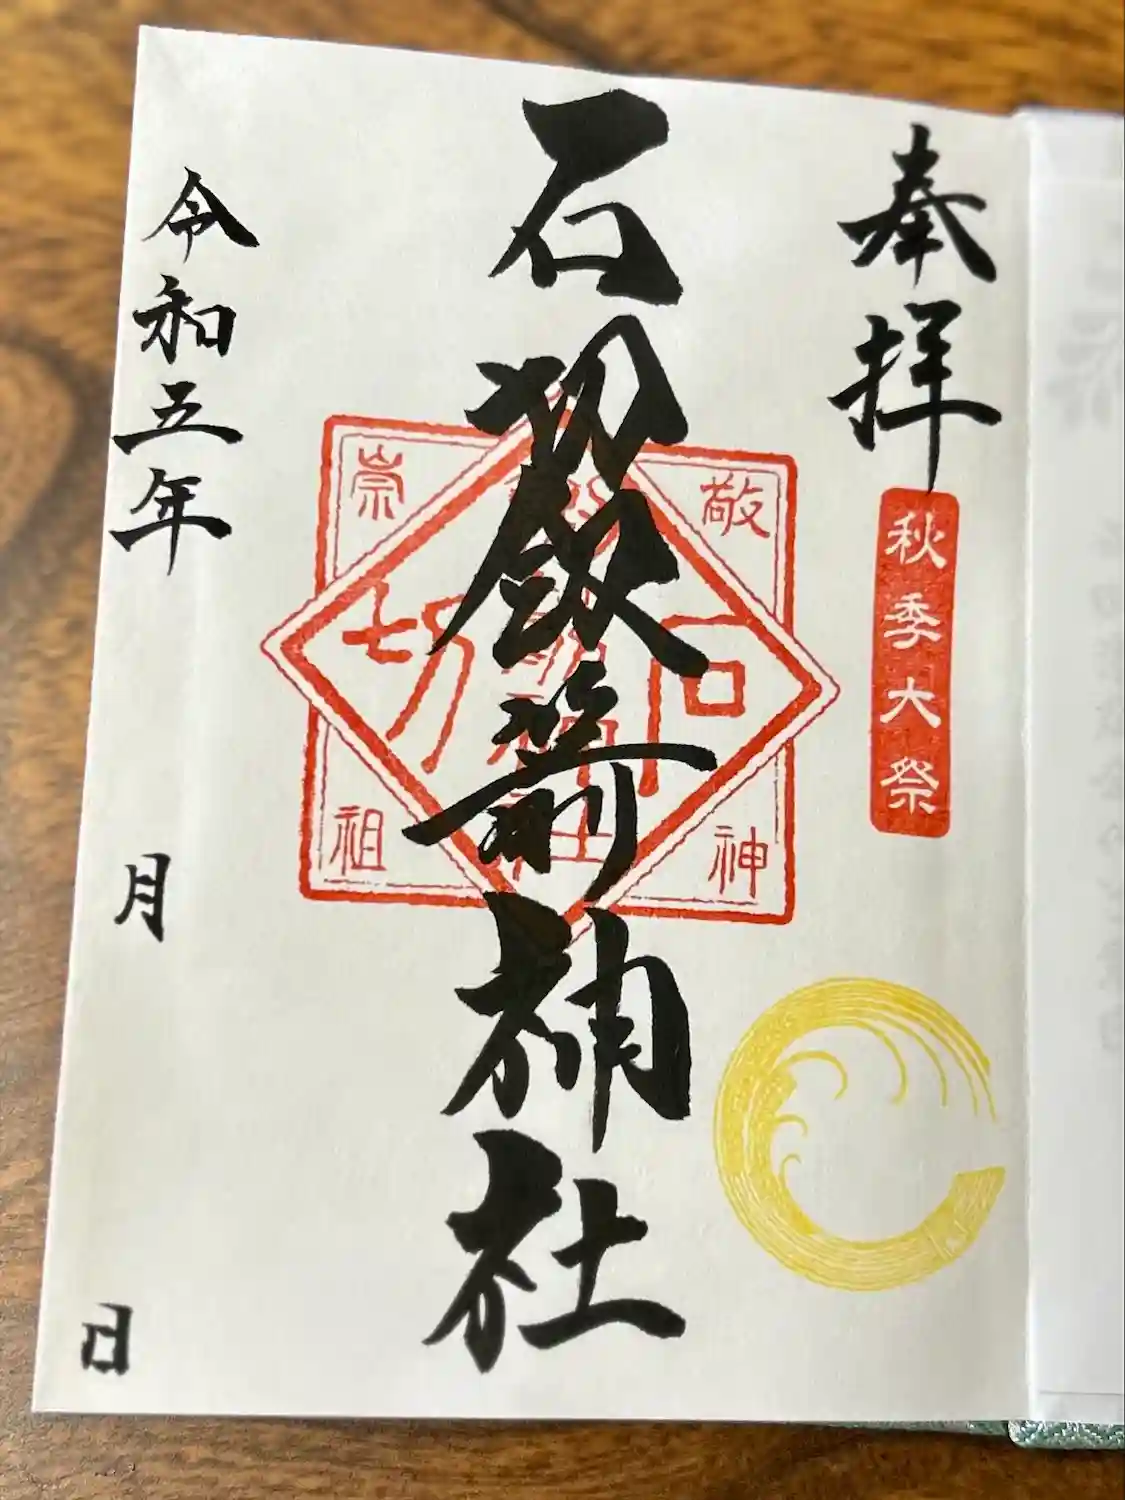 奉拝
秋季大祭
石切劔箭神社
敬神
崇祖
石切
令和五年
月
日